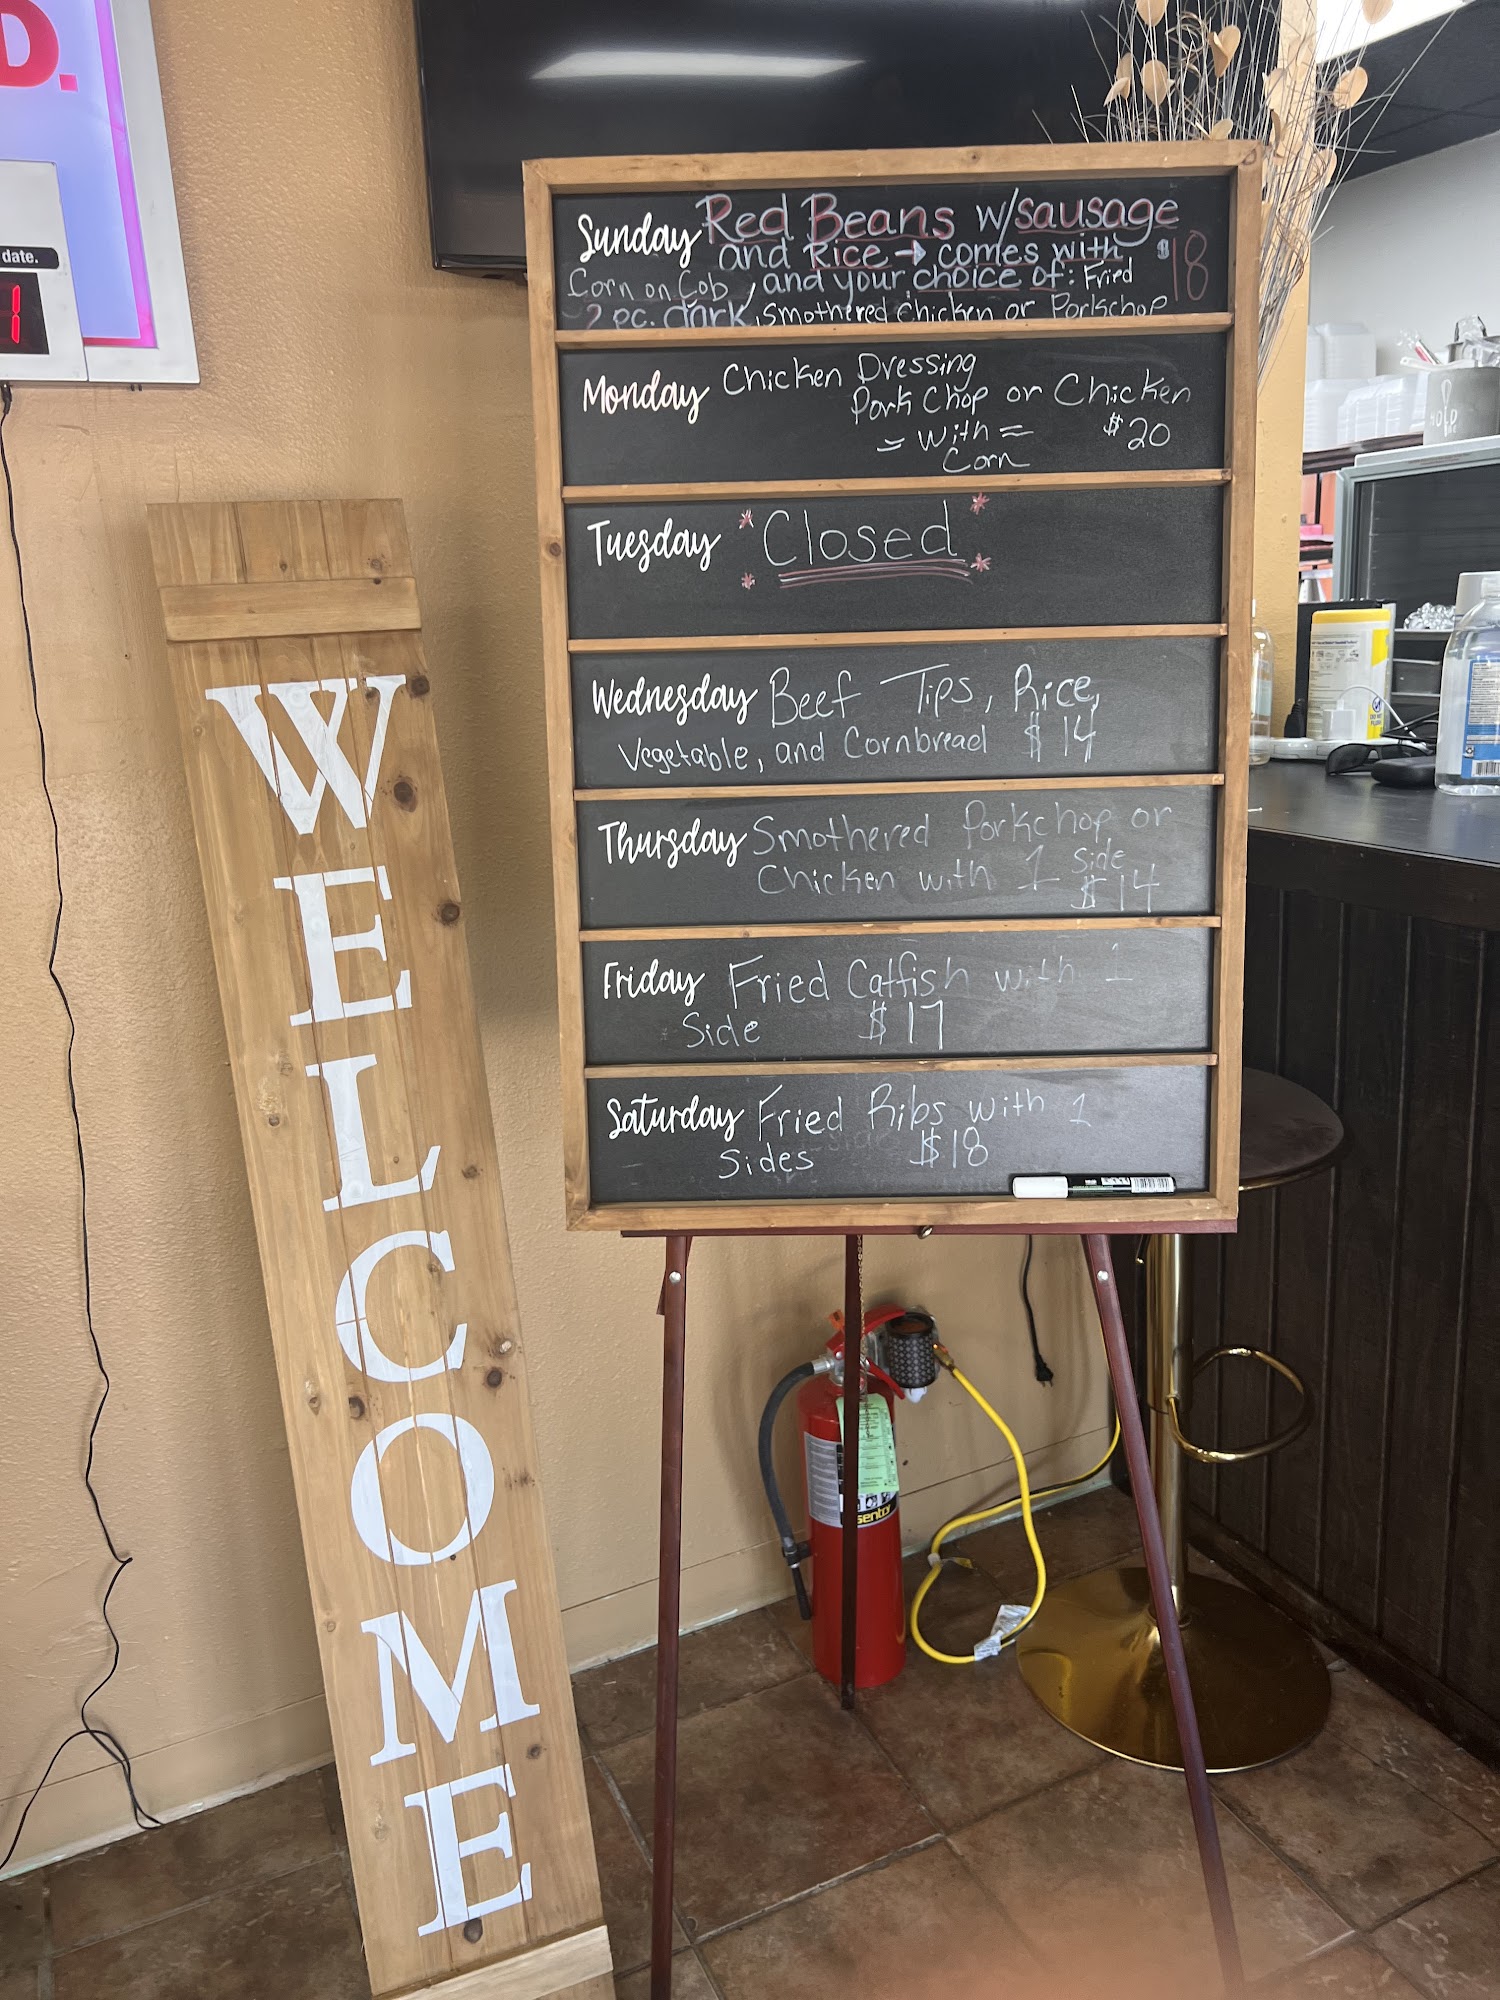 D.
date.
1
Sunday Red Beans w/sausage
and Rice → comes with $18
Corn on Cob, and your choice of: Fried
2 pc. dark, smothered chicken or Porkchop
Monday Chicken Dressing
Pork Chop or Chicken
= With = $20
Corn
Tuesday * Closed *
* *
Wednesday Beef Tips, Rice,
Vegetable, and Cornbread $14
Thursday Smothered Porkchop or
Chicken with 1 Side
$14
Friday Fried Catfish with 1
Side $17
Saturday Fried Ribs with 1
Sides $18
WELCOME
sentry
HOLD